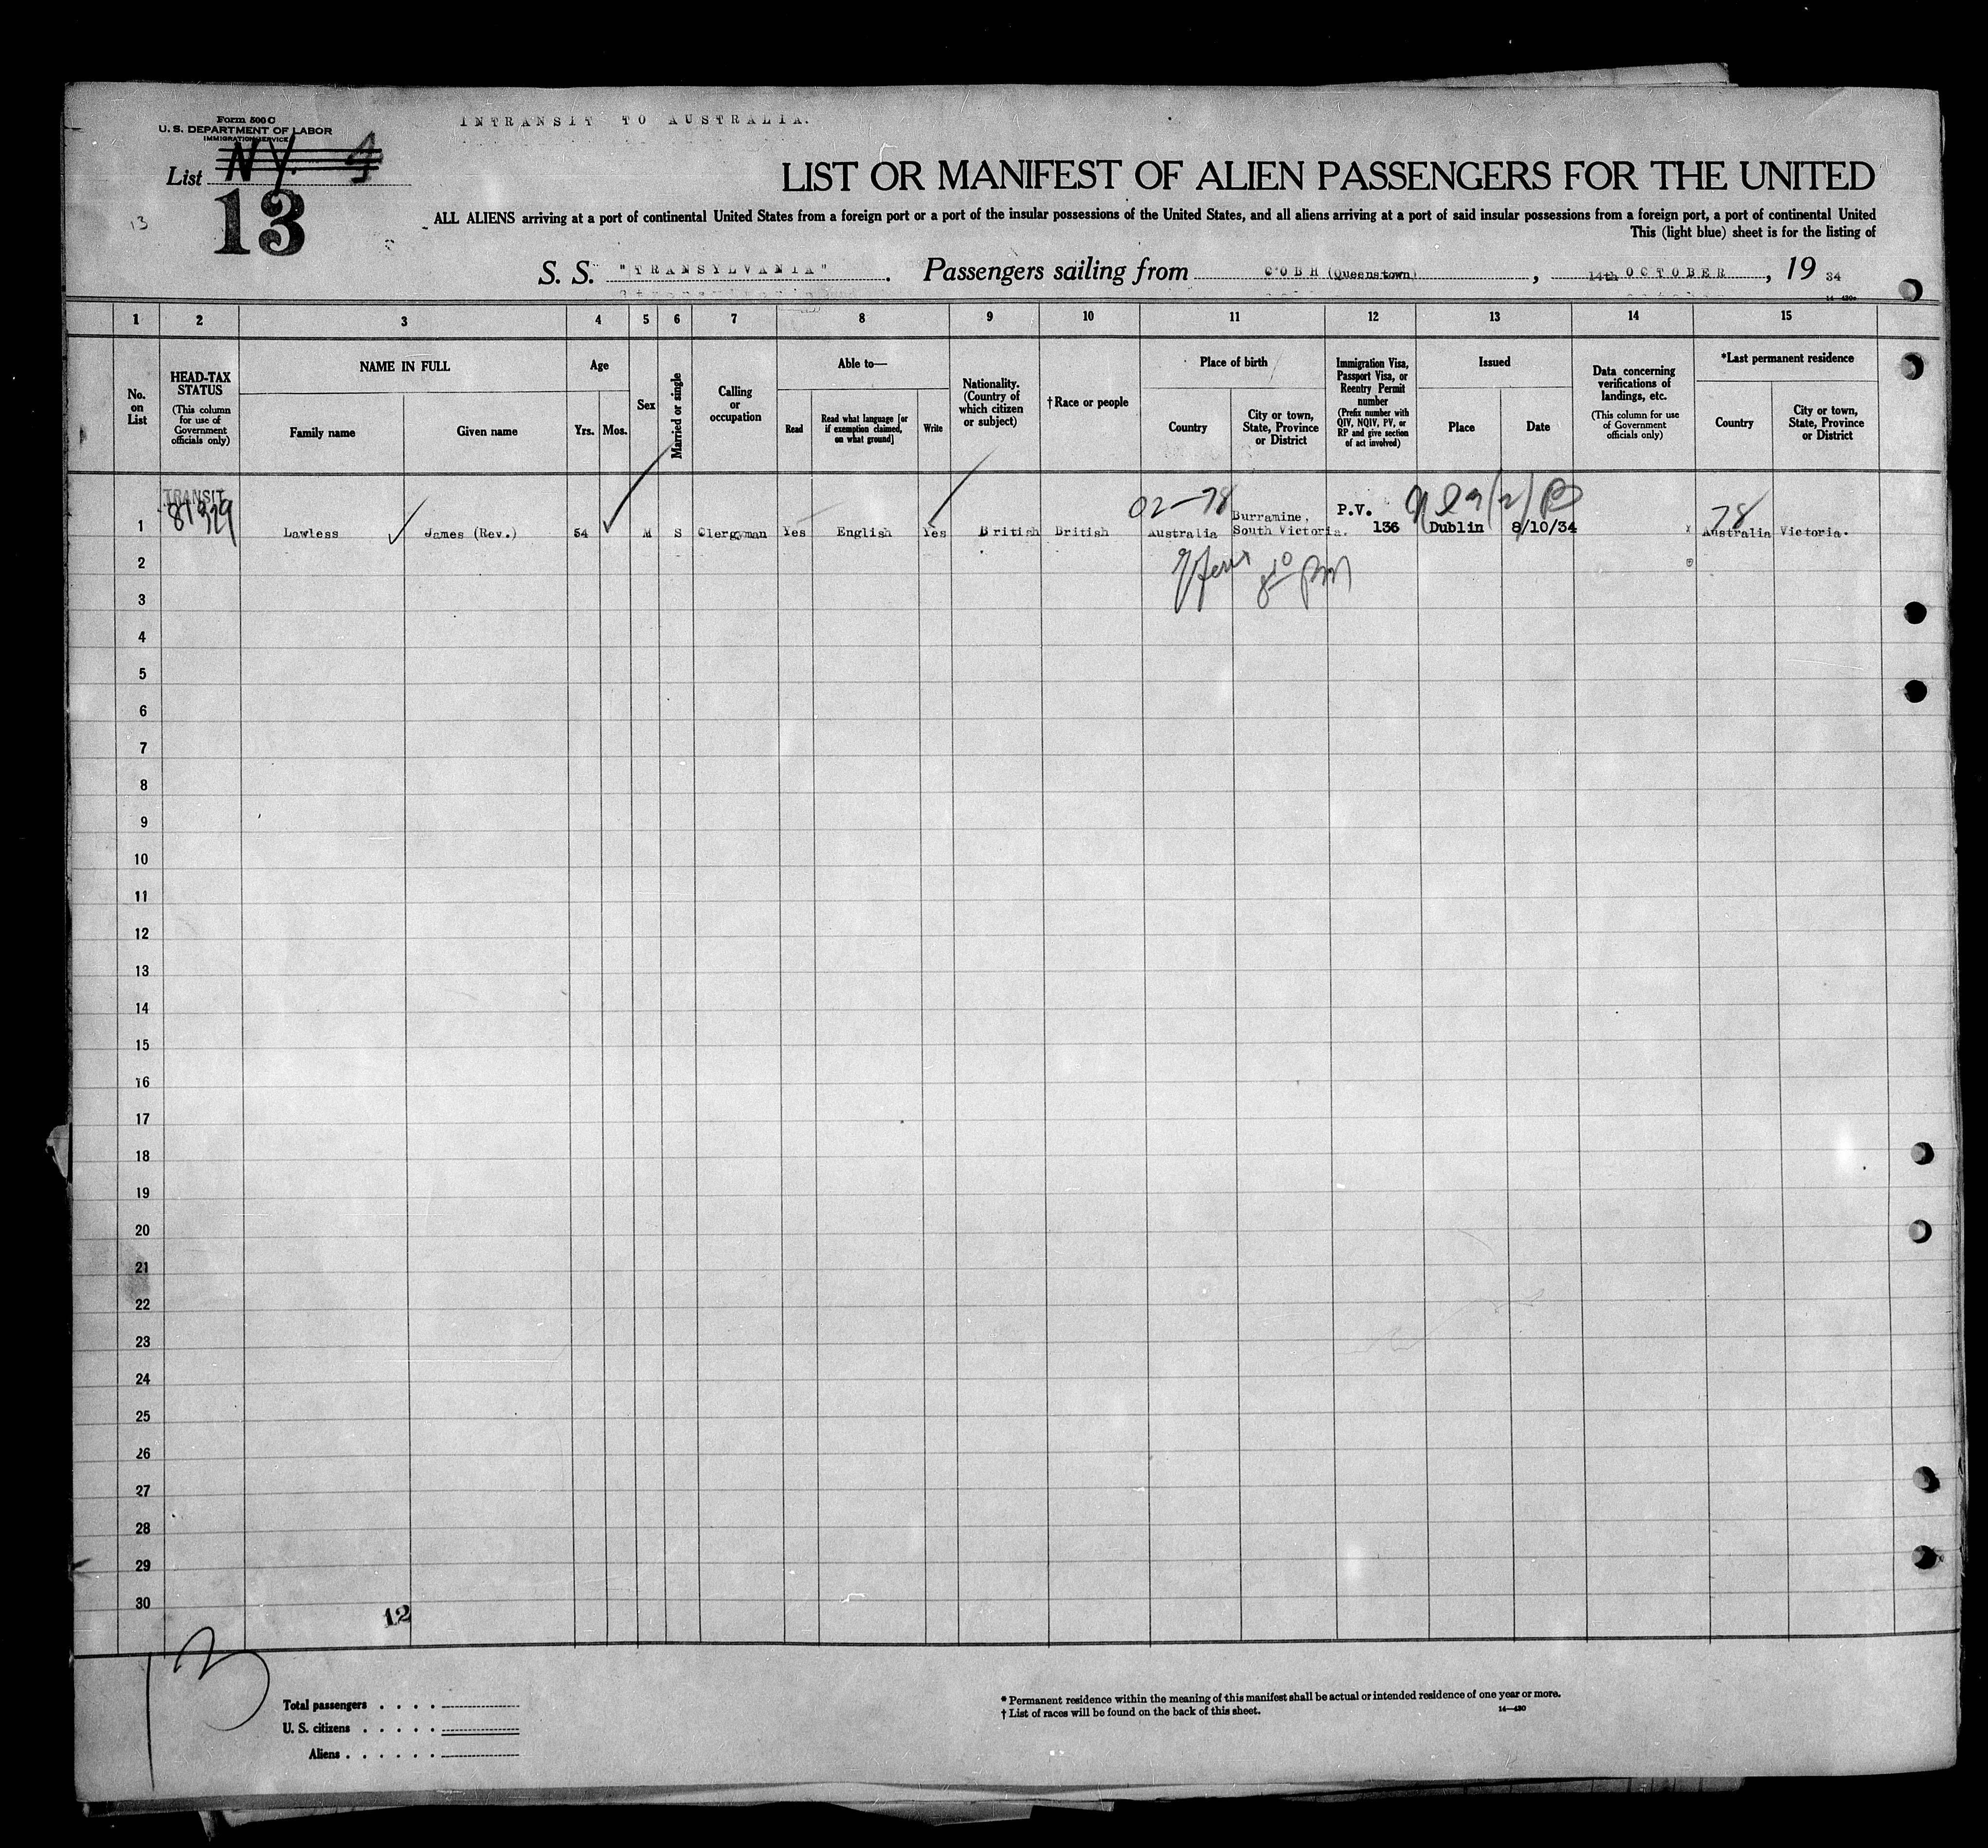 Form 500 C
U. S. DEPARTMENT OF LABOR
IMMIGRATION SERVICE
INTRANSIT TO AUSTRALIA.
List NY. 4
13
13
LIST OR MANIFEST OF ALIEN PASSENGERS FOR THE UNITED
ALL ALIENS arriving at a port of continental United States from a foreign port or a port of the insular possessions of the United States, and all aliens arriving at a port of said insular possessions from a foreign port, a port of continental United
This (light blue) sheet is for the listing of
S. S. "TRANSYLVANIA". Passengers sailing from COBH (Queenstown), 14th OCTOBER, 19 34
1 2 3 4 5 6 7 8 9 10 11 12 13 14 15
No. on List
HEAD-TAX STATUS
(This column for use of Government officials only)
NAME IN FULL
Family name
Given name
Age
Yrs. Mos.
Sex
Married or single
Calling or occupation
Able to—
Read
Read what language [or if exemption claimed, on what ground]
Write
Nationality. (Country of which citizen or subject)
†Race or people
Place of birth
Country
City or town, State, Province or District
Immigration Visa, Passport Visa, or Reentry Permit number
(Prefix number with QIV, NQIV, PV, or RP and give section of act involved)
Issued
Place
Date
Data concerning verifications of landings, etc.
(This column for use of Government officials only)
*Last permanent residence
Country
City or town, State, Province or District
TRANSIT
02-78
78
1 Lawless James (Rev.) 54 M S Clergyman Yes English Yes British British Australia Burramine, South Victoria. P.V. 136 Dublin 8/10/34 x Australia Victoria.
2
3
4
5
6
7
8
9
10
11
12
13
14
15
16
17
18
19
20
21
22
23
24
25
26
27
28
29
30
12
13
Total passengers . . . .
U. S. citizens . . . . .
Aliens . . . . . .
* Permanent residence within the meaning of this manifest shall be actual or intended residence of one year or more.
† List of races will be found on the back of this sheet.
14—430